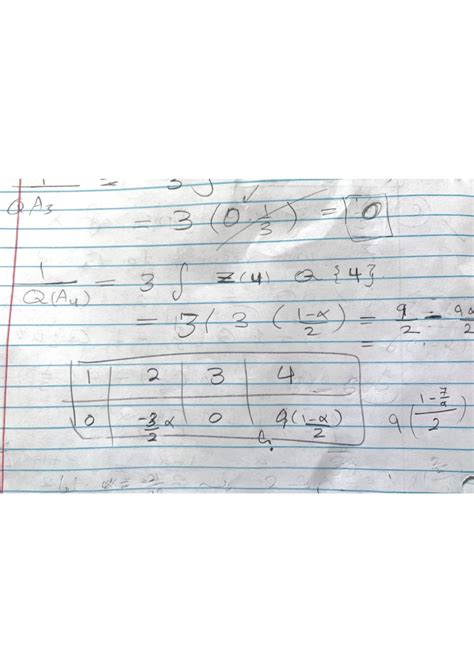 1/QA₃ =
= 3 (0 · 1/3) = 0
1/Q(A₄) = 3 ∫ Z(4) Q {4}
= 3( 3 (1-α/2) = 9/2 - 9α/2
=
1 2 3 4
0 -3/2 α 0 9(1-α/2) 9(1-7/α/2)